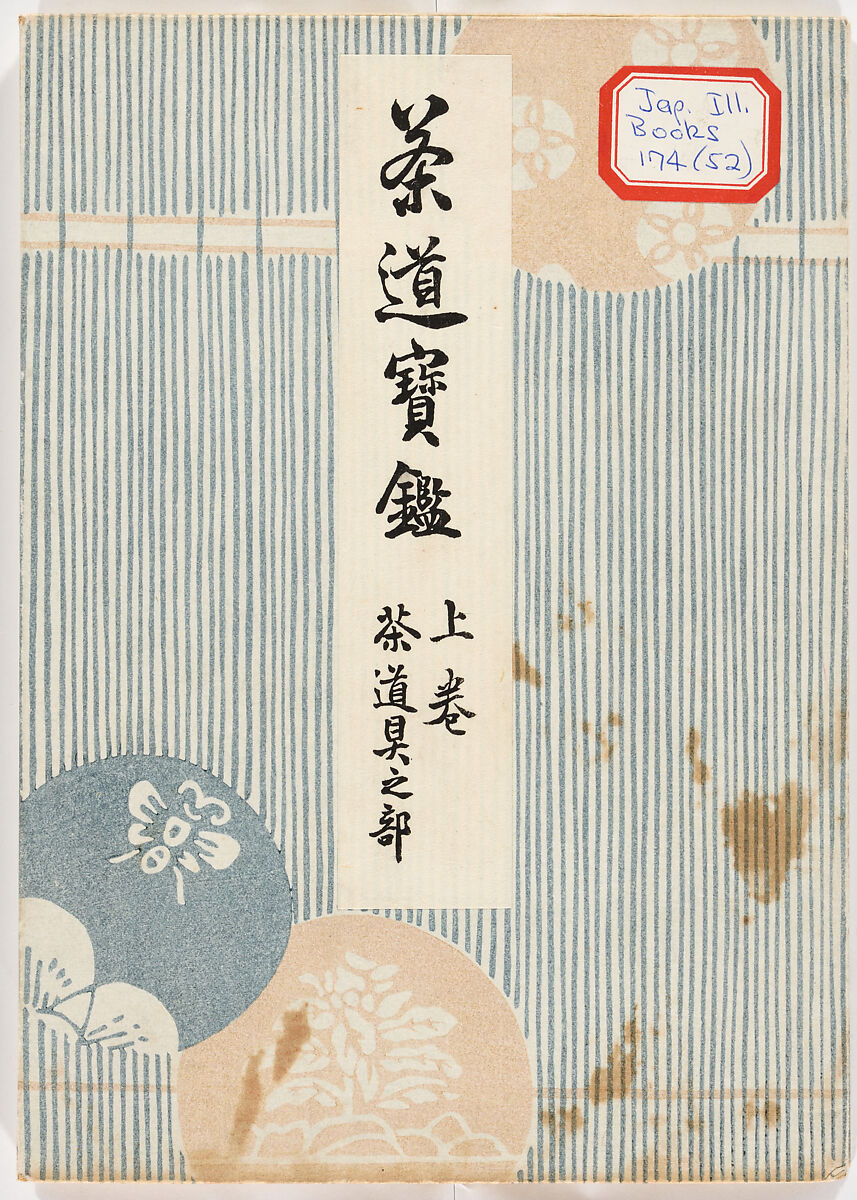 茶道寶鑑
上卷
茶道具之部
Jap. Ill.
Books
174(52)